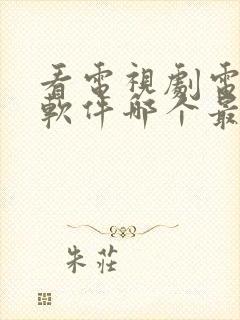 看電視劇電
軟件哪个最
朱莊